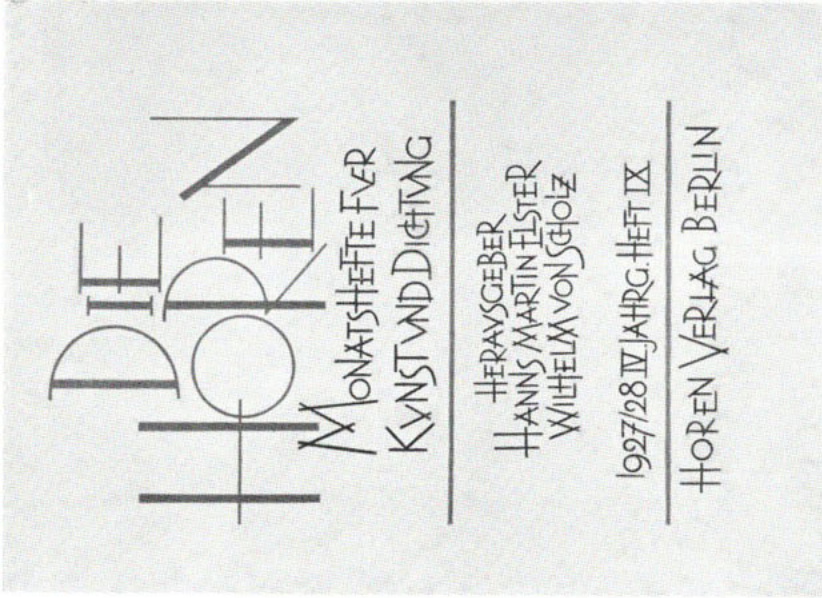 DIE
HOREN
MONATSHEFTE FVER
KVNST VND DICHTVNG
HERAVSGEBER
HANNS MARTIN ELSTER
WILHELM VON SCHOLZ
1927/28 IV. JAHRG. HEFT IX
HOREN VERLAG BERLIN